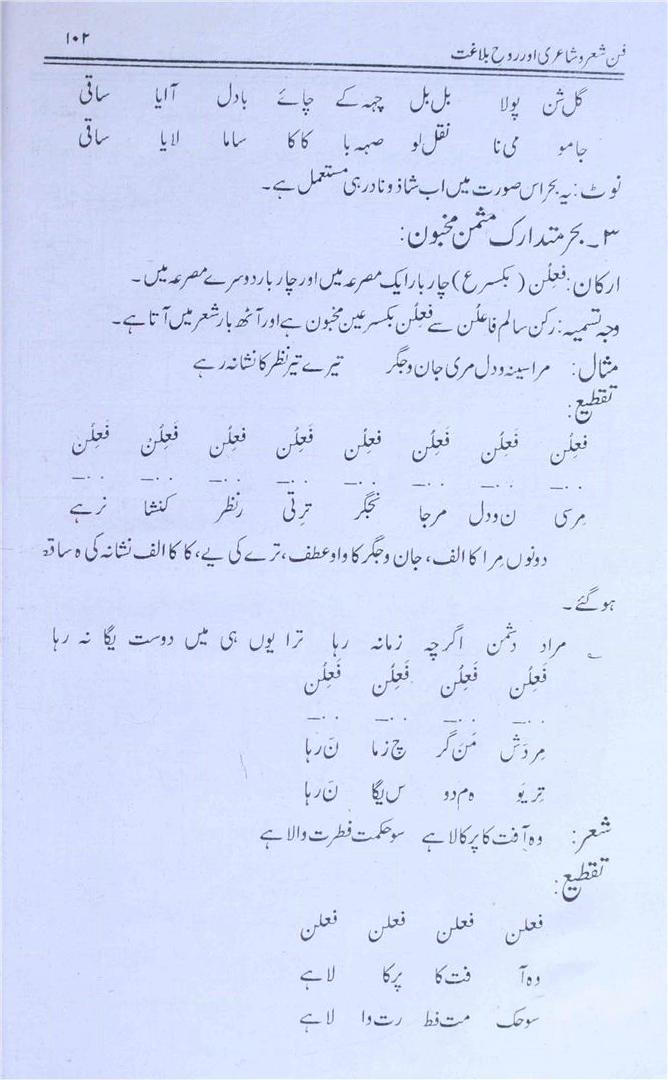 ۱۰۲
فن شعر و شاعری اور روح بلاغت
گل شن پولا بل بل چہہ کے چائے بادل آایا ساقی
جامو می نا نقل لو صہہ با کا کا ساما لایا ساقی
نوٹ: یہ بحر اس صورت میں اب شاذ و نادر ہی مستعمل ہے۔
۳۔ بحر متدارک مثمن مخبون:
ارکان: فَعِلُن ( بکسر ع) چار بار ایک مصرعہ میں اور چار بار دوسرے مصرعہ میں۔
وجہ تسمیہ: رکن سالم فاعلن سے فَعِلُن بکسر عین مخبون ہے اور آٹھ بار شعر میں آتا ہے۔
مثال: مرا سینہ و دل مری جان و جگر تیرے تیر نظر کا نشانہ رہے
تقطیع:
فَعِلُن فَعِلُن فَعِلُن فَعِلُن فَعِلُن فَعِلُن فَعِلُن فَعِلُن
مِرسی ن ودل مرجا نجگر ترتی رنظر کنشا نرہے
دونوں مِرا کا الف، جان و جگر کا واو عطف، ترے کی یے، کا کا الف نشانہ کی ہ ساقط
ہو گئے۔
؎ مراد دشمن اگرچہ زمانہ رہا ترا یوں ہی میں دوست یگا نہ رہا
فَعِلُن فَعِلُن فَعِلُن فَعِلُن
مِردَش مَن گر چ زما نَ رہا
تِریَو ہ م دو س یگا نَ رہا
شعر: وہ آفت کا پرکالا ہے سو حکمت فطرت والا ہے
تقطیع:
فعلن فعلن فعلن فعلن
وہ آ فت کا پرکا لا ہے
سوحک مت فط رت وا لا ہے